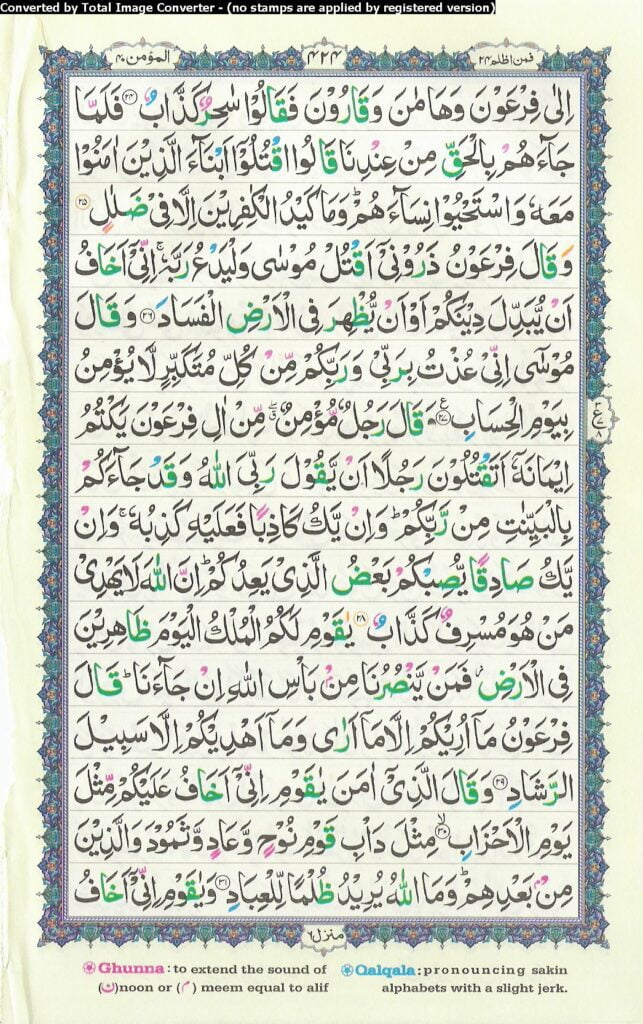 Converted by Total Image Converter - (no stamps are applied by registered version)
فمن اظلم ۲۴
۴۲۴
المؤمن ۴۰
اِلٰى فِرْعَوْنَ وَهَامٰنَ وَقَارُوْنَ فَقَالُوْا سٰحِرٌ كَذَّابٌ ۲۴ فَلَمَّا
جَآءَهُمْ بِالْحَقِّ مِنْ عِنْدِنَا قَالُوا اقْتُلُوْٓا اَبْنَآءَ الَّذِيْنَ اٰمَنُوْا
مَعَهٗ وَاسْتَحْيُوْا نِسَآءَهُمْ ؕ وَمَا كَيْدُ الْكٰفِرِيْنَ اِلَّا فِيْ ضَلٰلٍ ۲۵
وَقَالَ فِرْعَوْنُ ذَرُوْنِيْٓ اَقْتُلْ مُوْسٰى وَلْيَدْعُ رَبَّهٗ ۚ اِنِّيْٓ اَخَافُ
اَنْ يُّبَدِّلَ دِيْنَكُمْ اَوْ اَنْ يُّظْهِرَ فِي الْاَرْضِ الْفَسَادَ ۲۶ وَقَالَ
مُوْسٰٓى اِنِّيْ عُذْتُ بِرَبِّيْ وَرَبِّكُمْ مِّنْ كُلِّ مُتَكَبِّرٍ لَّا يُؤْمِنُ
بِيَوْمِ الْحِسَابِ ۲۷ ع وَقَالَ رَجُلٌ مُّؤْمِنٌ ۖ مِّنْ اٰلِ فِرْعَوْنَ يَكْتُمُ
اِيْمَانَهٗٓ اَتَقْتُلُوْنَ رَجُلًا اَنْ يَّقُوْلَ رَبِّيَ اللّٰهُ وَقَدْ جَآءَكُمْ
بِالْبَيِّنٰتِ مِنْ رَّبِّكُمْ ؕ وَاِنْ يَّكُ كَاذِبًا فَعَلَيْهِ كَذِبُهٗ ۚ وَاِنْ
يَّكُ صَادِقًا يُّصِبْكُمْ بَعْضُ الَّذِيْ يَعِدُكُمْ ؕ اِنَّ اللّٰهَ لَا يَهْدِيْ
مَنْ هُوَ مُسْرِفٌ كَذَّابٌ ۲۸ يٰقَوْمِ لَكُمُ الْمُلْكُ الْيَوْمَ ظَاهِرِيْنَ
فِي الْاَرْضِ ؗ فَمَنْ يَّنْصُرُنَا مِنْۢ بَاْسِ اللّٰهِ اِنْ جَآءَنَا ؕ قَالَ
فِرْعَوْنُ مَآ اُرِيْكُمْ اِلَّا مَآ اَرٰى وَمَآ اَهْدِيْكُمْ اِلَّا سَبِيْلَ
الرَّشَادِ ۲۹ وَقَالَ الَّذِيْٓ اٰمَنَ يٰقَوْمِ اِنِّيْٓ اَخَافُ عَلَيْكُمْ مِّثْلَ
يَوْمِ الْاَحْزَابِ ۳۰ مِثْلَ دَاْبِ قَوْمِ نُوْحٍ وَّعَادٍ وَّثَمُوْدَ وَالَّذِيْنَ
مِنْۢ بَعْدِهِمْ ؕ وَمَا اللّٰهُ يُرِيْدُ ظُلْمًا لِّلْعِبَادِ ۳۱ وَيٰقَوْمِ اِنِّيْٓ اَخَافُ
منزل ۶
Ghunna : to extend the sound of
(ن)noon or (م) meem equal to alif
Qalqala : pronouncing sakin
alphabets with a slight jerk.